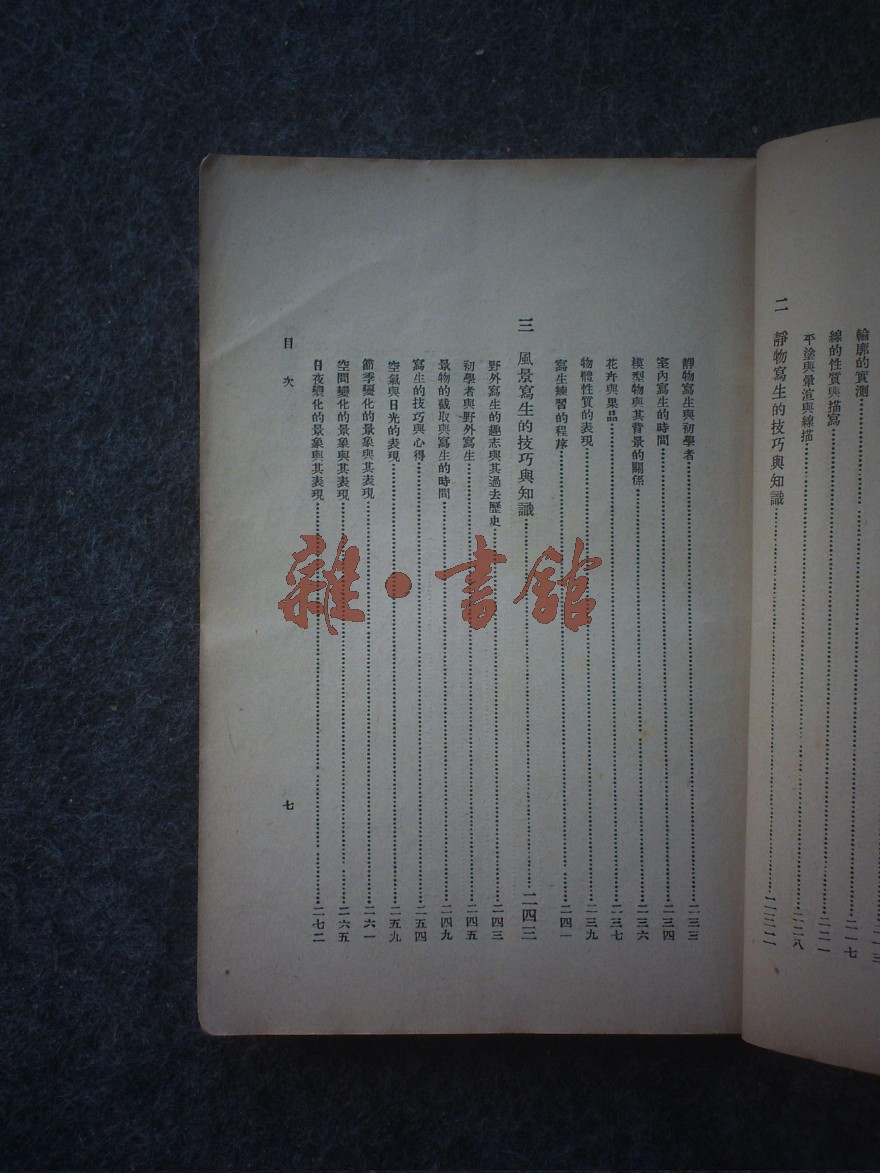 輪廓的實測……二一三
線的性質與描寫……二一七
平塗與暈渲與線描……二二八
二 靜物寫生的技巧與知識……二三二
靜物寫生與初學者……二三三
室內寫生的時間……二三四
模型物與其背景的關係……二三六
花卉與果品……二三七
物體性質的表現……二三九
寫生練習的程序……二四一
三 風景寫生的技巧與知識……二四三
野外寫生的趣志與其過去歷史……二四三
初學者與野外寫生……二四五
景物的截取與寫生的時間……二四九
寫生的技巧與心得……二五四
空氣與日光的表現……二五九
節季變化的景象與其表現……二六一
空間變化的景象與其表現……二六五
日夜變化的景象與其表現……二七二
目次
七
雜·書館